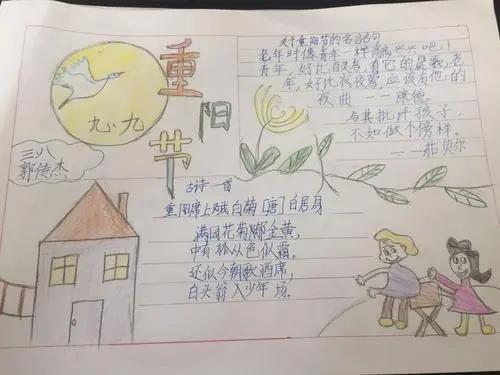 重阳节
九九
三八
郭传杰
关于重阳节的名言名句
老年时像青年一样高高兴兴吧！
青年，好比百灵鸟，有它的晨歌，老
年，好比夜莺，应该有他的
夜曲 ——康德
与其批评孩子，
不如做个榜样。
——茹贝尔
古诗一首
重阳席上赋白菊 [唐] 白居易
满园花菊郁金黄，
中有孤丛色似霜。
还似今朝歌酒席，
白头翁入少年场。